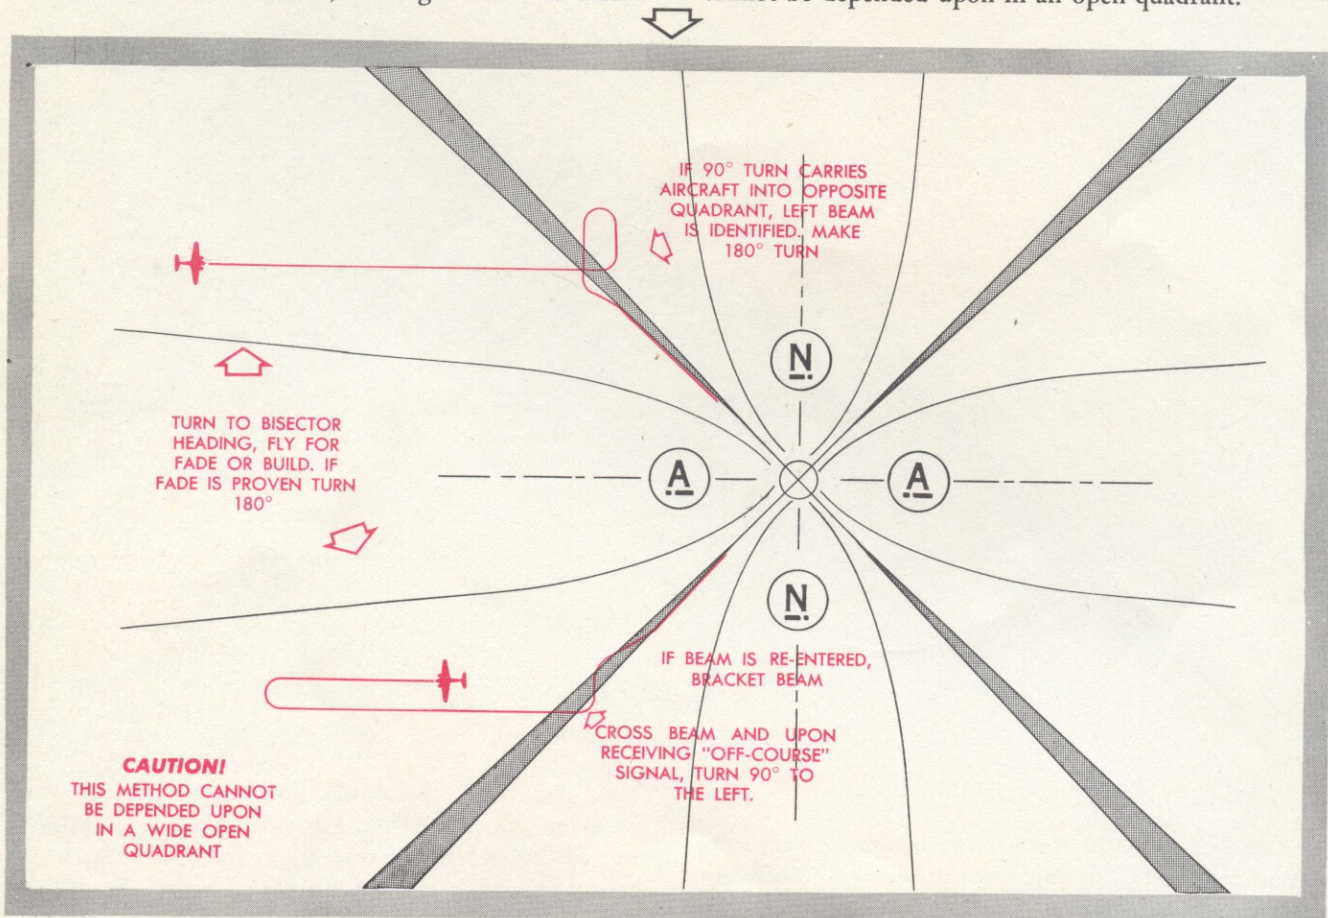 cannot be depended upon in an open quadrant.
IF 90° TURN CARRIES
AIRCRAFT INTO OPPOSITE
QUADRANT, LEFT BEAM
IS IDENTIFIED. MAKE
180° TURN
N
TURN TO BISECTOR
HEADING, FLY FOR
FADE OR BUILD. IF
FADE IS PROVEN TURN
180°
A
A
N
IF BEAM IS RE-ENTERED,
BRACKET BEAM
CROSS BEAM AND UPON
RECEIVING "OFF-COURSE"
SIGNAL, TURN 90° TO
THE LEFT.
CAUTION!
THIS METHOD CANNOT
BE DEPENDED UPON
IN A WIDE OPEN
QUADRANT